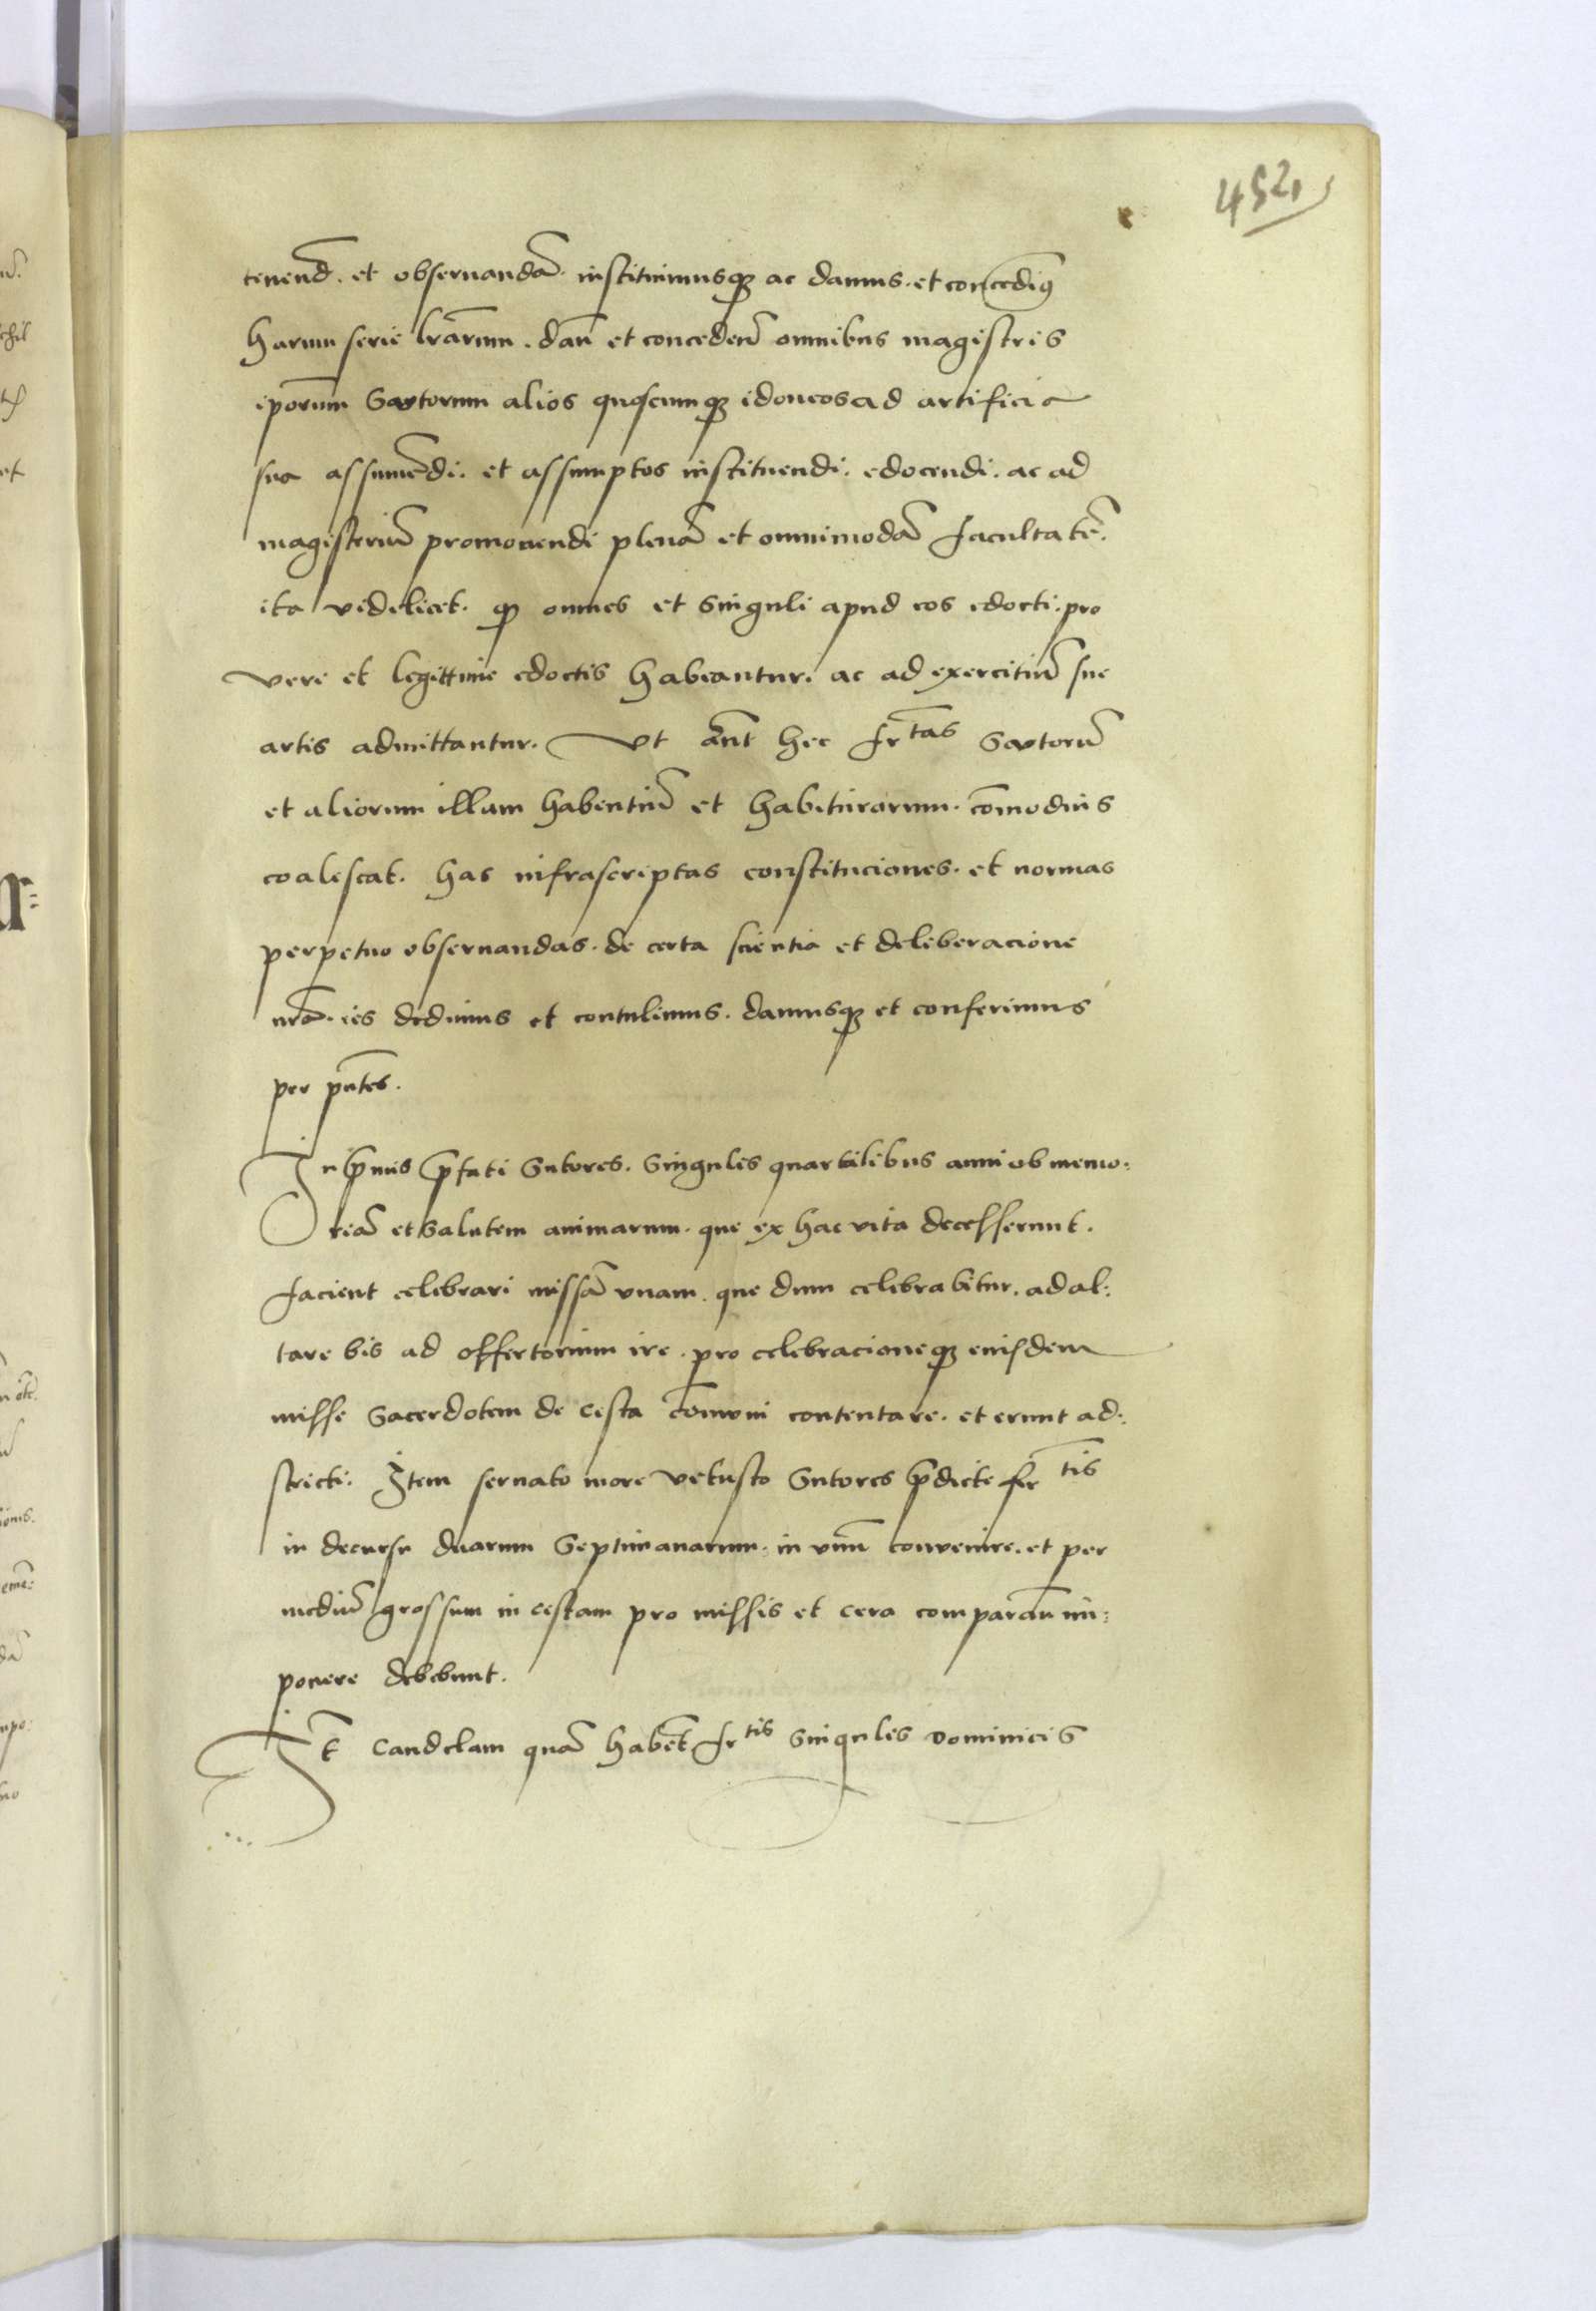 452
tenend̄. et obseruandā. instituimusqꝫ ac damus. et concedimꝰ
harum serie lrārum. dan̄ et conceden̄ omnibus magistris
ipōrum Sartorum alios quoscumqꝫ idoneos ad artificia
sua assumēdi. et assumptos instituendi. edocendi. ac ad
magisteriū promouendi plenā et omnimodā facultatē.
ita videlicet. ꝙ omnes et singuli apud eos edocti. pro
vere et legittime edoctis habeantur. ac ad exercitiū sue
artis admittantur. Vt aūt hec frtās Sartorū
et aliorum illam habentiū et habiturorum. cōmodius
coalescat. has infrascriptas constituciones. et normas
perpetuo obseruandas. de certa scientia et deliberacione
nrā. eis dedimus et contulimus. damusqꝫ et conferimus
per pn̄tes.
Inpꝛimis p̄fati Sutores. singulis quartalibus anni ob memo:
riā et salutem animarum. que ex hac vita decesserunt.
facient celebrari missā vnam. que dum celebrabitur. ad al:
tare bis ad offertorium ire. pro celebracioneqꝫ eiusdem
misse sacerdotem de cista cōmuni contentare. et erunt ad:
stricti. Item seruato more vetusto Sutores p̄dicte frtis
in decursu duarum septimanarum. in vnū conuenire. et per
mediū grossum in cistam pro missis et cera comparan̄ im:
ponere debebunt.
It̄ candelam quā habēt frtis singulis dominicis